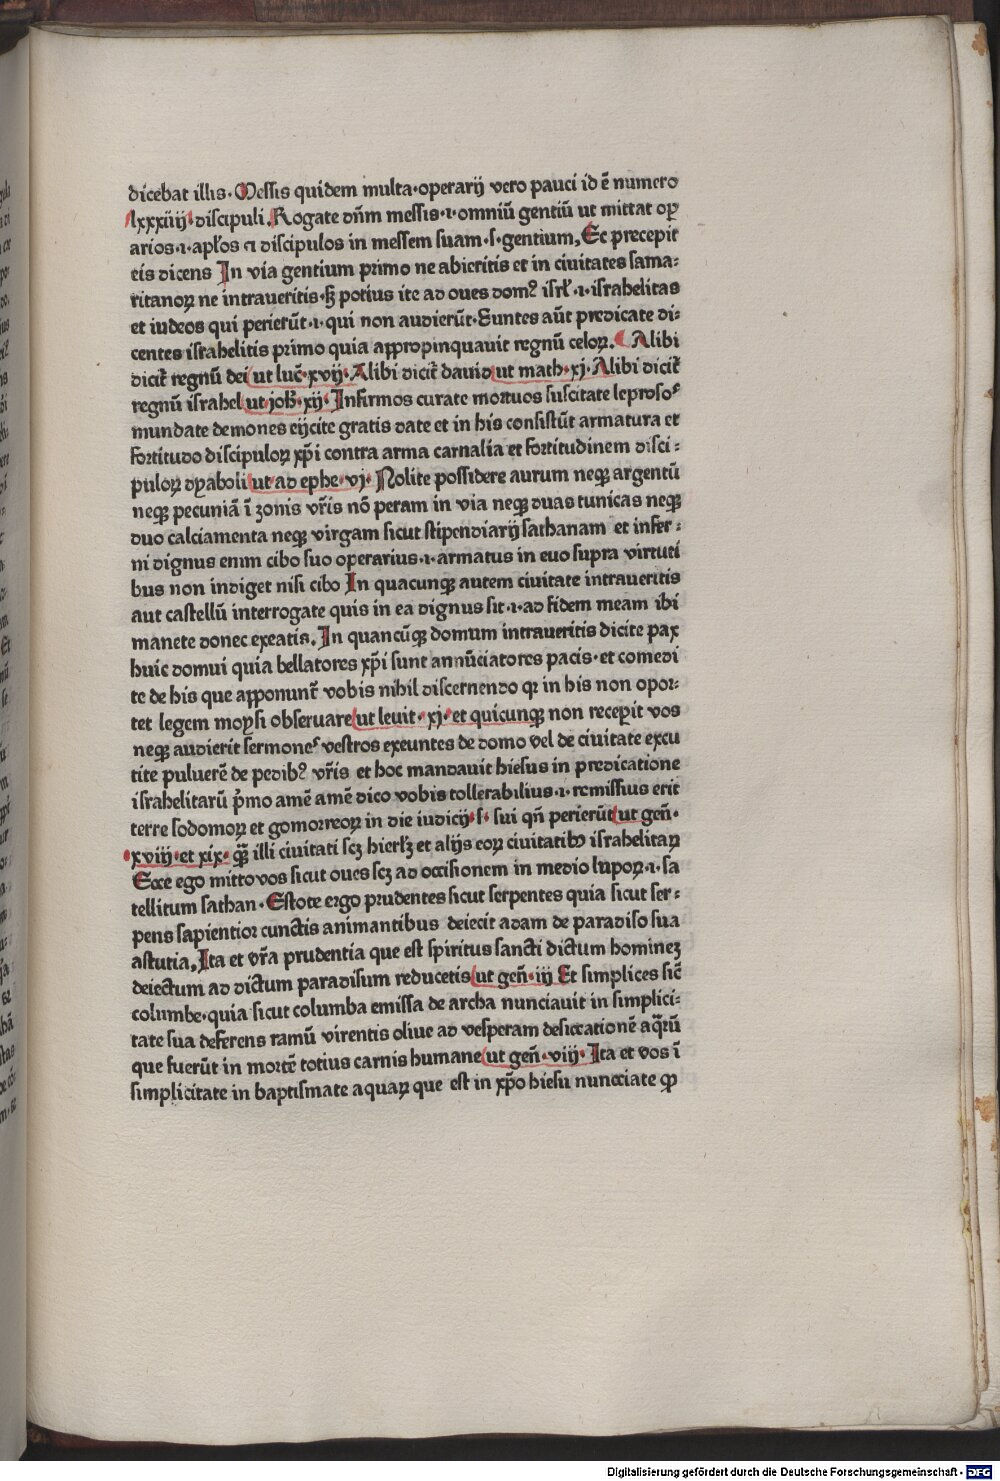 dicebat illis·Messis quidem multa·operarij vero pauci id ē numero
lxxxiiij discipuli. Rogate dn̄m messis·i·omniū gentiū ut mittat oꝑ
arios·i·apl'os ⁊ discipulos in messem suam·s·gentium, Et precepit
eis dicens In via gentium primo ne abieritis et in ciuitates sama:
ritanoꝝ ne intraueritis·sꝫ potius ite ad oues domꝰ isrl'·i·israhelitas
et iudeos qui perierūt·i·qui non audierūt·Euntes aūt predicate di:
centes israhelitis primo quia appropinquauit regnū celoꝝ. Alibi
dicit̄ regnū dei ut luc̄·xvij·Alibi dicit̄ dauid ut math·xj·Alibi dicit̄
regnū israhel ut joh̄·xij·Infirmos curate mortuos suscitate leprosos
mundate demones eijcite gratis date et in his consistūt armatura et
fortitudo discipuloꝝ xp̄i contra arma carnalia et fortitudinem disci:
puloꝝ dyaboli ut ad ephe·vj·Nolite possidere aurum neqꝫ argentū
neqꝫ pecuniā ī zonis vr̄is nō peram in via neqꝫ duas tunicas neqꝫ
duo calciamenta neqꝫ virgam sicut stipendiarij sathanam et infer:
ni dignus enim cibo suo operarius·i·armatus in euo supra virtuti
bus non indiget nisi cibo In quacunqꝫ autem ciuitate intraueritis
aut castellū interrogate quis in ea dignus sit·i·ad fidem meam ibi
manete donec exeatis. In quancūqꝫ domum intraueritis dicite pax
huic domui quia bellatores xp̄i sunt annūciatores pacis·et comedi
te de his que apponunt̄ vobis nihil discernendo qr in his non opor:
tet legem moysi obseruare ut leuit·xj·et quicunqꝫ non recepit vos
neqꝫ audierit sermones vestros exeuntes de domo vel de ciuitate excu
tite puluerē de pedibꝰ vr̄is et hoc mandauit hiesus in predicatione
israhelitarū p̄mo amē amē dico vobis tollerabilius·i·remissius erit
terre sodomoꝝ et gomorreoꝝ in die iudicij·s·sui qn̄ perierūt ut gen̄·
xviij·et xix· qꝫ̄ illi ciuitati scꝫ hierl'ꝫ et alijs eoꝝ ciuitatibꝫ israhelitaꝝ
Ecce ego mitto vos sicut oues scꝫ ad occisionem in medio lupoꝝ·i·sa
tellitum sathan·Estote ergo prudentes sicut serpentes quia sicut ser:
pens sapientior cunctis animantibus deiecit adam de paradiso sua
astutia, Ita et vr̄a prudentia que est spiritus sancti dictum homineꝫ
deiectum ad dictum paradisum reducetis ut gen̄·iij Et simplices sic̄
columbe·quia sicut columba emissa de archa nunciauit in simplici:
tate sua deferens ramū virentis oliue ad vesperam desiccationē aq̄ꝝ
que fuerūt in mortē totius carnis humane ut gen̄·viij· Ita et vos ī
simplicitate in baptismate aquaꝝ que est in xp̄o hiesu nunciate ꝙ
Digitalisierung gefördert durch die Deutsche Forschungsgemeinschaft - DFG